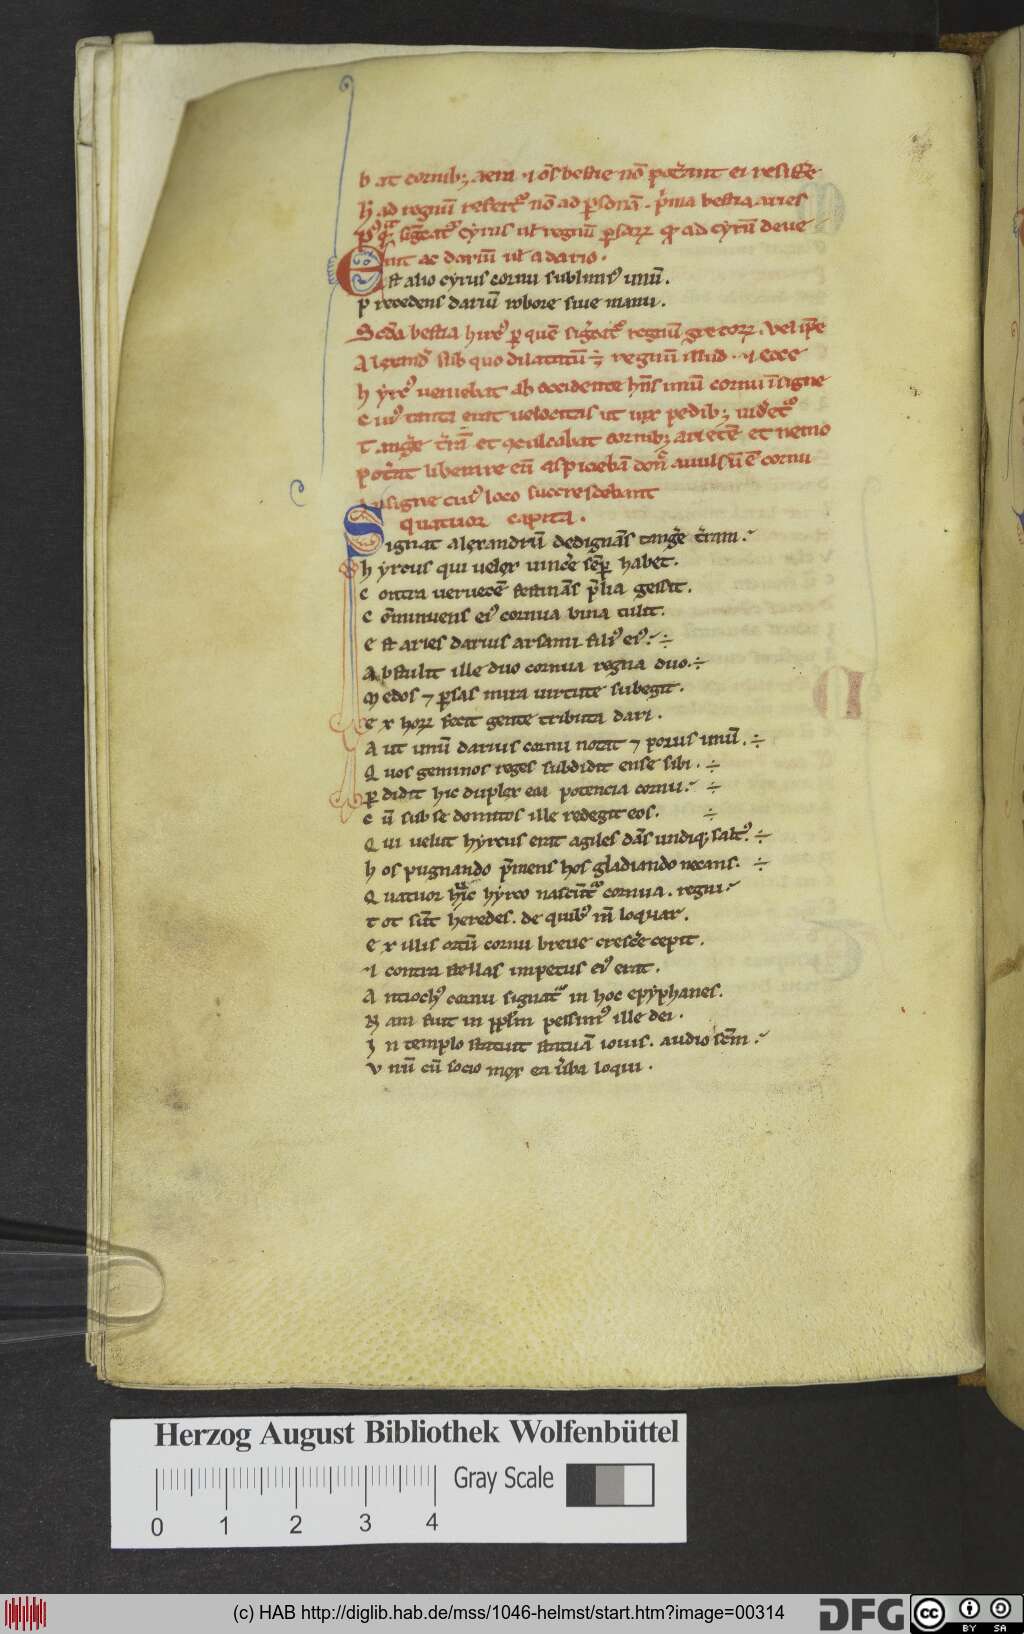 bat cornibꝫ aera ⁊ om̄s bestie nō pot̄ant ei resist̄e
h̄ ad regnū refert᷑ nō ad p̱sonā. p̄ma bestia aries
Erit ac dariū ul̓ a dario.
Est alio cẏrus cornu sublimi᷒ unū.
precedens dariū robore siue manu.
Scd̄a bestia hirc᷒ p̱ quē sig̅cat᷑ regnū grecoꝝ. vel ip̄e
Alexand̓ sub quo dilatatū ÷ regnū illud. ⁊ ecce
hẏrc᷒ veniebat ab occidente hn̄s unū cornu īsigne
cui᷒ tanta erat velocitas ut uix pedibꝫ uid̓et᷑
Tang̓e t̓rā et ꝯculcabat cornibꝫ arietē et nemo
pot̓at liberare eū aspiciebā don̄ auulsū ē cornu
insigne cui᷒ loco succrescebant
quatuor capita.
Signat alexandrū dedignās tang̓e t̓ram.
hẏrcus qui uelox uinc̓e semp̱ habet.
contra ueruecē festinās p̄lia gessit.
cōminuens ei᷒ cornua bina tulit.
Est aries darius arsami fili᷒ ei᷒. ÷
Abstulit ille duo cornua regna duo. ÷
Medos ⁊ p̱sas mira uirtute subegit.
Ex hoꝝ fecit gente tributa dari.
Aut unū darius cornu notat ⁊ porus unū. ÷
Quos geminos reges subdidit ense sibi. ÷
p̱didit hic duplex ea potencia cornu. ÷
cū sub se domitos ille redegit eos. ÷
Qui uelut hẏrcus erat agiles dās undiqꝫ salt᷒. ÷
hos pugnando p̄mens hos gladiando necans. ÷
Quatuor hinc hẏrco nascūt᷑ cornua. regni
tot sūt heredes. de quibꝫ m̄ loquar.
Ex illis ortū cornu breue cresc̓e cepit.
⁊ contra stellas impetus ei᷒ erat.
Antioch᷒ cornu signat᷑ in hoc epẏphanes.
Nam fuit in pp̄l̄m pessim᷒ ille dei.
In templo statuit statuā iouis. audio sc̄m.
vnū cū socio mox ea v̓ba loqui.
Herzog August Bibliothek Wolfenbüttel
Gray Scale
0 1 2 3 4
(c) HAB http://diglib.hab.de/mss/1046-helmst/start.htm?image=00314
DFG
cc
BY SA